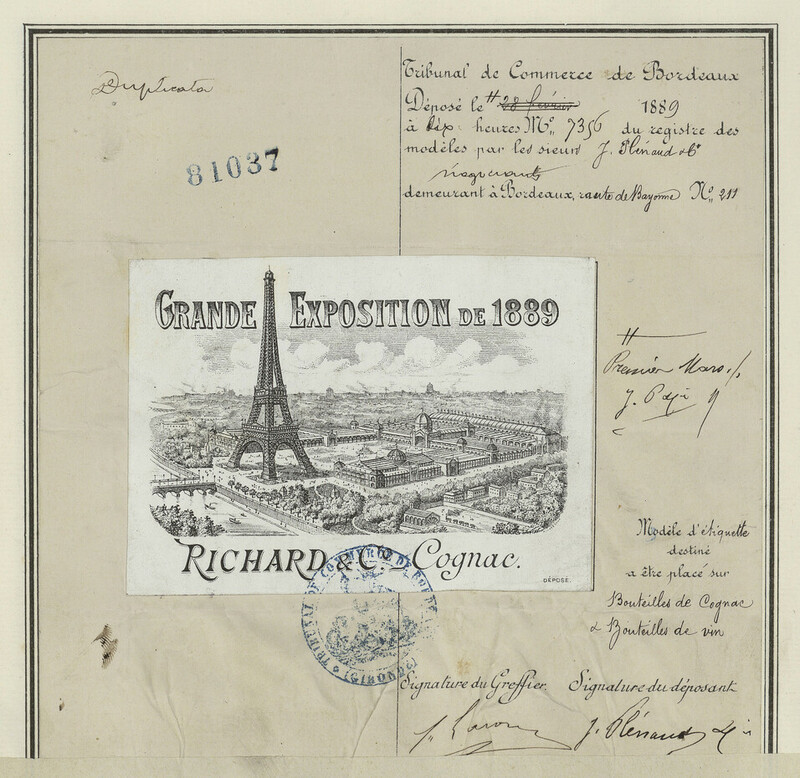 Duplicata
81037
Tribunal de Commerce de Bordeaux
Déposé le # 28 février 1889
à dix heures M. No. 7356 du registre des
modèles par les sieurs J. Plénaud & Cie
négociants
demeurant à Bordeaux, route de Bayonne No. 211
GRANDE EXPOSITION DE 1889
RICHARD & Co - Cognac.
DÉPOSÉ.
#
Premier Mars ./.
J.
Modèle d'étiquette
destiné
a être placé sur
Bouteilles de Cognac
& Bouteilles de vin
TRIBUNAL DE COMMERCE DE BORDEAUX
(GIRONDE)
Signature du Greffier Signature du déposant
J. Plénaud & Cie